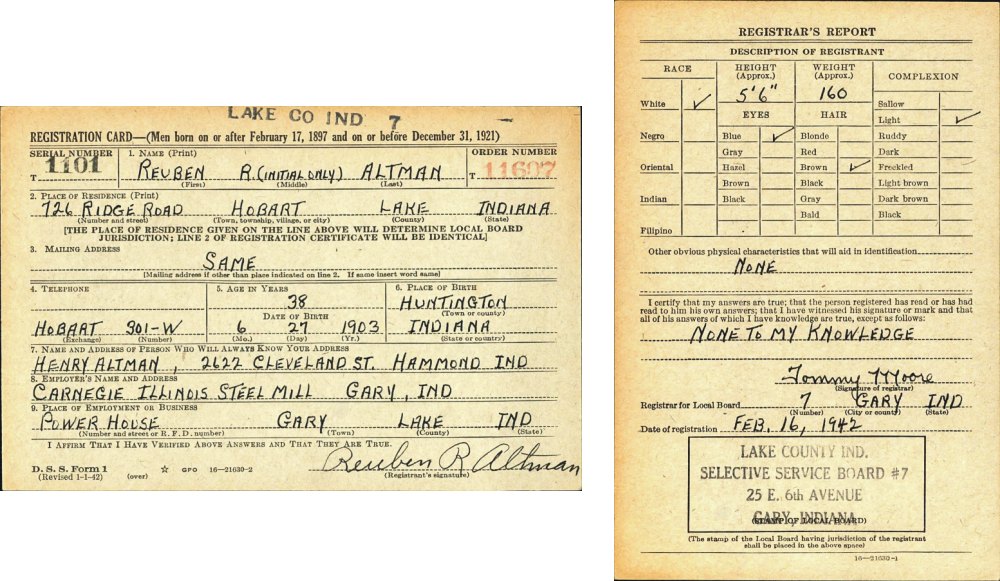 LAKE CO IND 7
REGISTRATION CARD—(Men born on or after February 17, 1897 and on or before December 31, 1921)
SERIAL NUMBER 1. NAME (Print) ORDER NUMBER
T 1101 REUBEN R.(INITIAL ONLY) ALTMAN T 11607
(First) (Middle) (Last)
2. PLACE OF RESIDENCE (Print)
726 RIDGE ROAD HOBART LAKE INDIANA
(Number and street) (Town, township, village, or city) (County) (State)
[THE PLACE OF RESIDENCE GIVEN ON THE LINE ABOVE WILL DETERMINE LOCAL BOARD
JURISDICTION; LINE 2 OF REGISTRATION CERTIFICATE WILL BE IDENTICAL]
3. MAILING ADDRESS
SAME
[Mailing address if other than place indicated on line 2. If same insert word same]
4. TELEPHONE 5. AGE IN YEARS 6. PLACE OF BIRTH
38 HUNTINGTON
DATE OF BIRTH (Town or county)
HOBART 301-W 6 27 1903 INDIANA
(Exchange) (Number) (Mo.) (Day) (Yr.) (State or country)
7. NAME AND ADDRESS OF PERSON WHO WILL ALWAYS KNOW YOUR ADDRESS
HENRY ALTMAN, 2622 CLEVELAND ST. HAMMOND IND
8. EMPLOYER'S NAME AND ADDRESS
CARNEGIE ILLINOIS STEEL MILL GARY, IND
9. PLACE OF EMPLOYMENT OR BUSINESS
POWER HOUSE GARY LAKE IND
(Number and street or R. F. D. number) (Town) (County) (State)
I AFFIRM THAT I HAVE VERIFIED ABOVE ANSWERS AND THAT THEY ARE TRUE.
Reuben R Altman
D. S. S. Form 1 ☆ GPO 16—21630-2 (Registrant's signature)
(Revised 1-1-42) (over)
REGISTRAR'S REPORT
DESCRIPTION OF REGISTRANT
RACE HEIGHT (Approx.) WEIGHT (Approx.) COMPLEXION
5'6" 160
White ✓ Sallow
EYES HAIR Light ✓
Negro Blue ✓ Blonde Ruddy
Gray Red Dark
Oriental Hazel Brown ✓ Freckled
Brown Black Light brown
Indian Black Gray Dark brown
Bald Black
Filipino
Other obvious physical characteristics that will aid in identification
NONE
I certify that my answers are true; that the person registered has read or has had
read to him his own answers; that I have witnessed his signature or mark and that
all of his answers of which I have knowledge are true, except as follows:
NONE TO MY KNOWLEDGE
Tommy Moore
(Signature of registrar)
Registrar for Local Board 7 GARY IND
(Number) (City or county) (State)
Date of registration FEB. 16, 1942
LAKE COUNTY IND.
SELECTIVE SERVICE BOARD #7
25 E. 6th AVENUE
GARY INDIANA
(STAMP OF LOCAL BOARD)
(The stamp of the Local Board having jurisdiction of the registrant
shall be placed in the above space)
16—21630-1